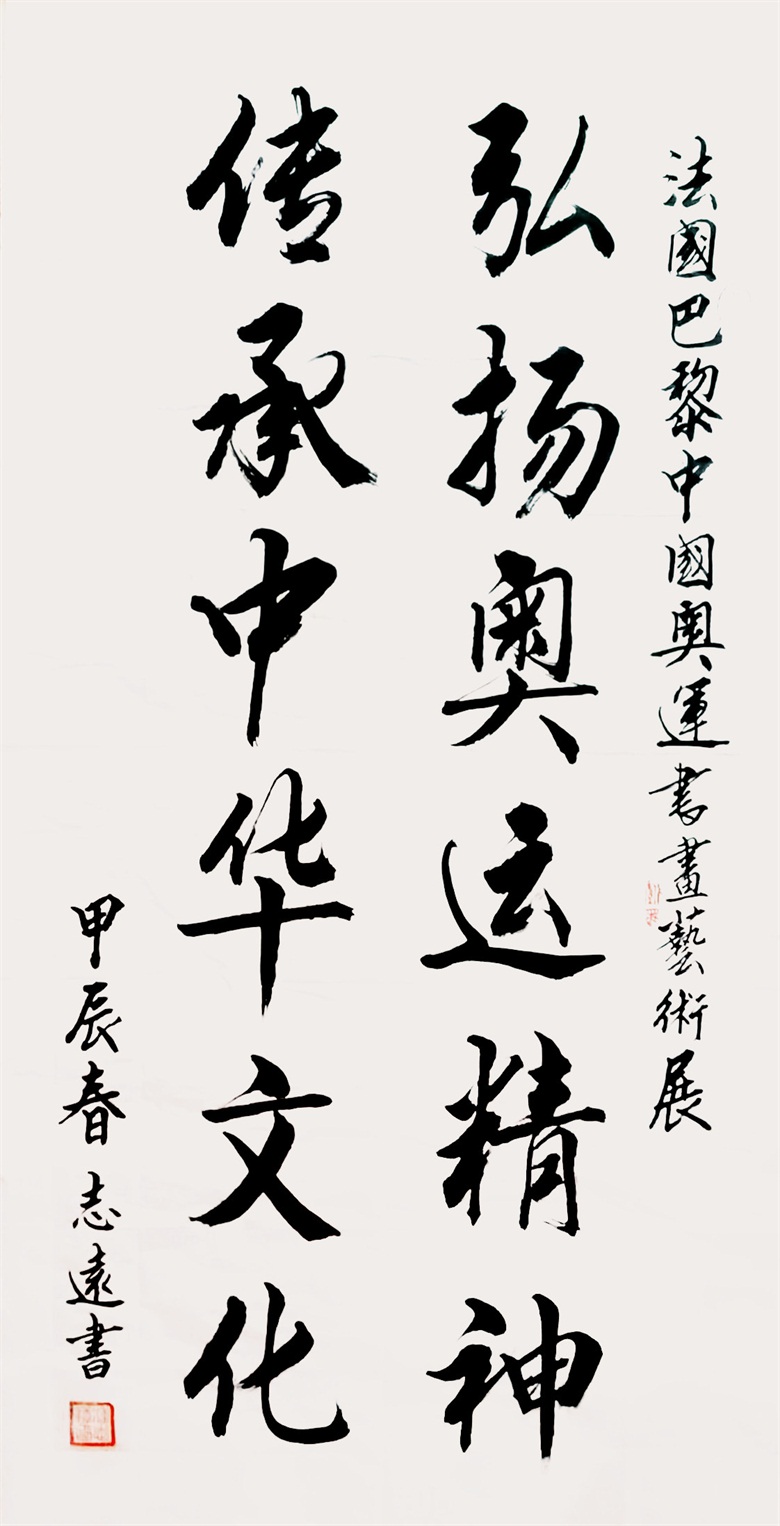 法國巴黎中國奧運書畫藝術展
弘扬奥运精神
传承中华文化
甲辰春志遠書